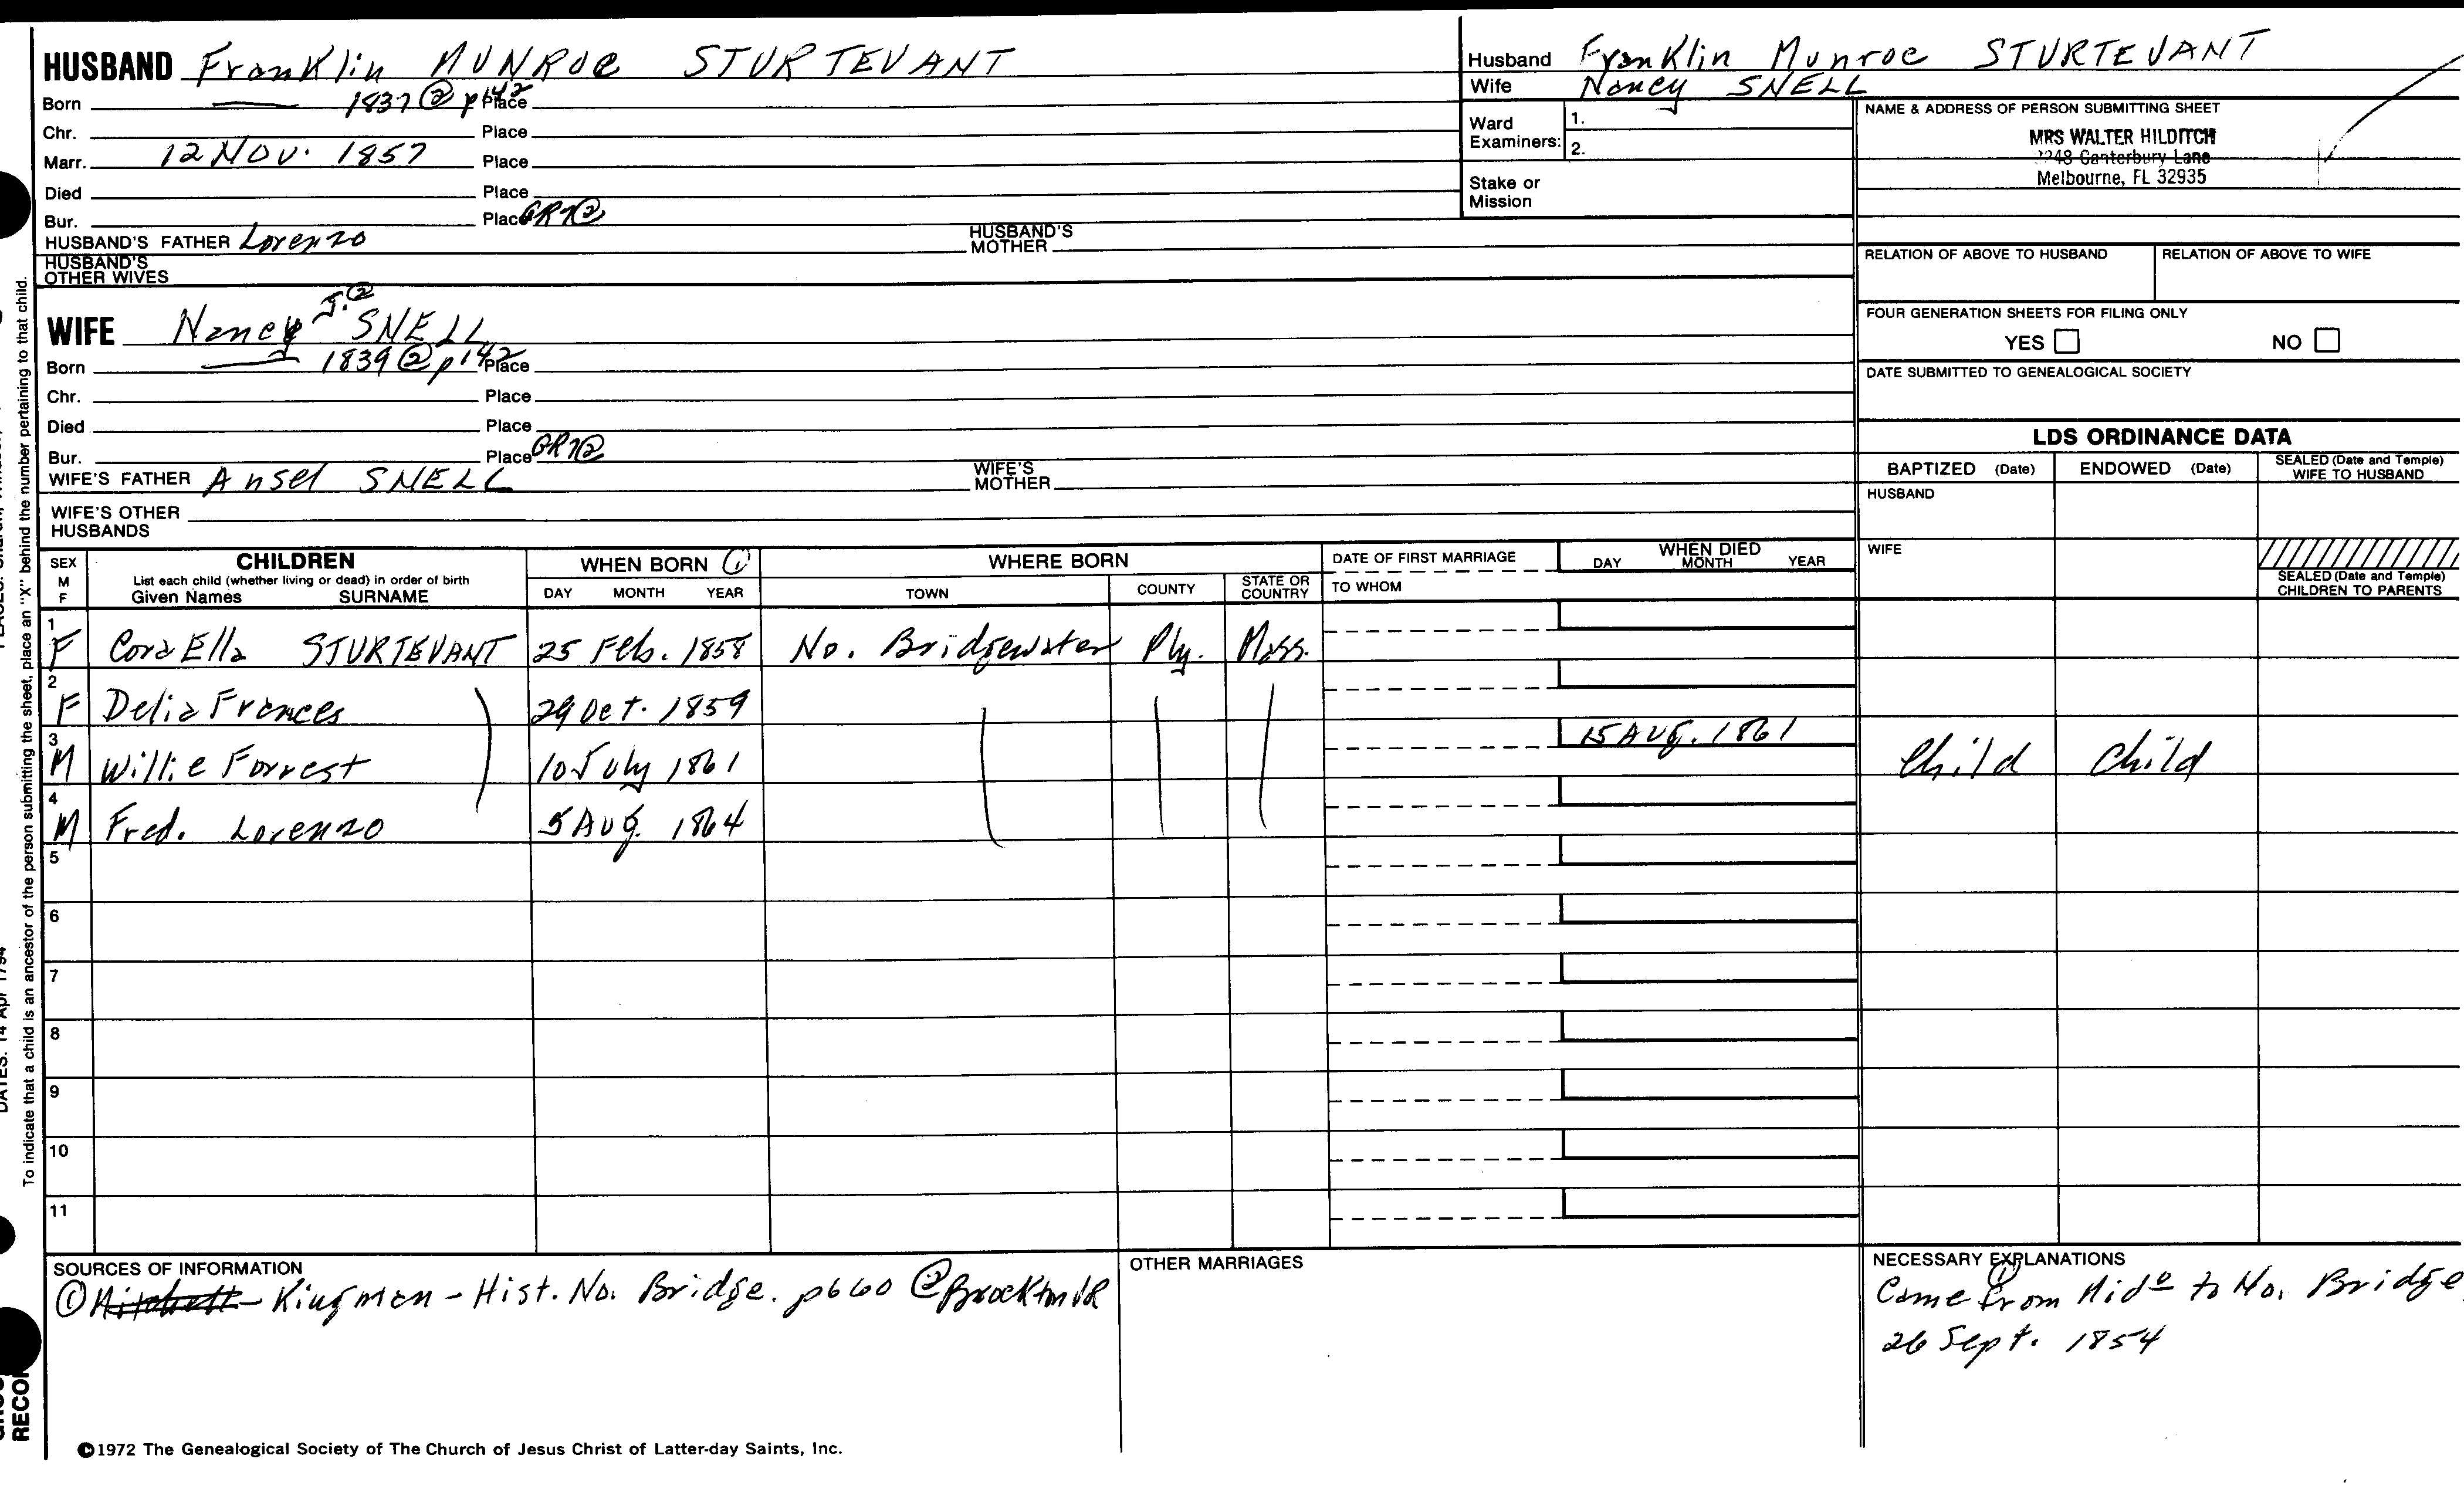 HUSBAND Franklin MUNROE STURTEVANT
Born 1837 ② p142 Place
Chr. Place
Marr. 12 NOV. 1857 Place
Died Place
Bur. Place GR7②
HUSBAND'S FATHER Lorenzo HUSBAND'S MOTHER
HUSBAND'S OTHER WIVES
Husband Franklin Munroe STURTEVANT
Wife Nancy SNELL
Ward Examiners: 1.
2.
Stake or Mission
NAME & ADDRESS OF PERSON SUBMITTING SHEET
MRS WALTER HILDITCH
Canterbury Lane
Melbourne, FL 32935
RELATION OF ABOVE TO HUSBAND RELATION OF ABOVE TO WIFE
FOUR GENERATION SHEETS FOR FILING ONLY
YES NO
DATE SUBMITTED TO GENEALOGICAL SOCIETY
WIFE Nancy J.② SNELL
Born 1839 ② p142 Place
Chr. Place
Died Place
Bur. Place GR7②
WIFE'S FATHER Ansel SNELL WIFE'S MOTHER
WIFE'S OTHER HUSBANDS
LDS ORDINANCE DATA
BAPTIZED (Date) ENDOWED (Date) SEALED (Date and Temple) WIFE TO HUSBAND
HUSBAND
WIFE
SEALED (Date and Temple) CHILDREN TO PARENTS
SEX M F
CHILDREN
List each child (whether living or dead) in order of birth
Given Names SURNAME
WHEN BORN ①
DAY MONTH YEAR
WHERE BORN
TOWN COUNTY STATE OR COUNTRY
DATE OF FIRST MARRIAGE
TO WHOM
WHEN DIED
DAY MONTH YEAR
1 F Cora Ella STURTEVANT 25 Feb. 1858 No. Bridgewater Ply. Mass.
2 F Delia Frances 29 Oct. 1859
3 M Willie Forrest 10 July 1861 15 AUG. 1861 Child Child
4 M Fred. Lorenzo 5 AUG. 1864
5
6
7
8
9
10
11
SOURCES OF INFORMATION
① Mitchell - Kingman - Hist. No. Bridge. p660 ② Brockton VR
OTHER MARRIAGES
NECESSARY EXPLANATIONS
① Came from Mid to No. Bridge
26 Sept. 1854
©1972 The Genealogical Society of The Church of Jesus Christ of Latter-day Saints, Inc.
To indicate that a child is an ancestor of the person submitting the sheet, place an "X" behind the number pertaining to that child.
DATES: 14 Apr 1794